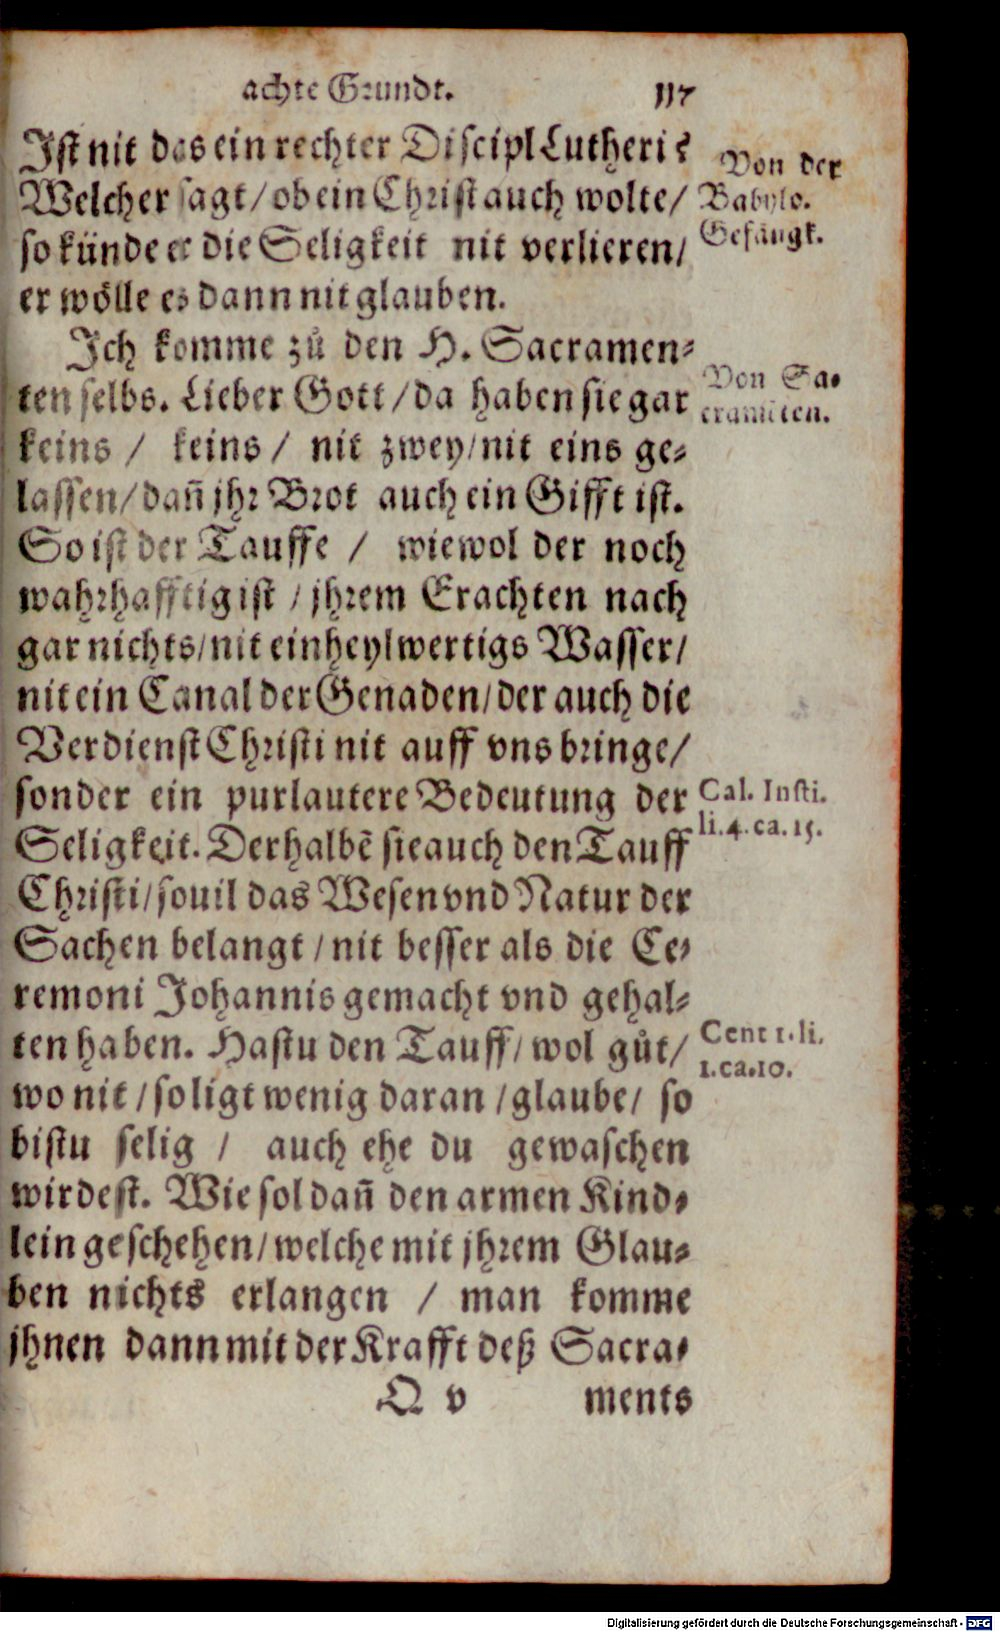 achte Grundt. 117
Ist nit das ein rechter Discipl Lutheri?
Welcher sagt / ob ein Christ auch wolte /
so künde er die Seligkeit nit verlieren /
er wölle es dann nit glauben.
Von der
Babylo.
Gefängk.
Ich komme zů den H. Sacramen⸗
ten selbs. Lieber Gott / da haben sie gar
keins / keins / nit zwey / nit eins ge⸗
lassen / dañ jhr Brot auch ein Gifft ist.
Von Sa⸗
cramẽten.
So ist der Tauffe / wiewol der noch
wahrhafftig ist / jhrem Erachten nach
gar nichts / nit ein heylwertigs Wasser /
nit ein Canal der Genaden / der auch die
Verdienst Christi nit auff vns bringe /
sonder ein purlautere Bedeutung der
Seligkeit. Derhalbẽ sie auch den Tauff
Cal. Insti.
li. 4. ca. 15.
Christi / souil das Wesen vnd Natur der
Sachen belangt / nit besser als die Ce⸗
remoni Johannis gemacht vnd gehal⸗
ten haben. Hastu den Tauff / wol gůt /
wo nit / so ligt wenig daran / glaube / so
Cent 1. li.
1. ca. 10.
bistu selig / auch ehe du gewaschen
wirdest. Wie sol dañ den armen Kind⸗
lein geschehen / welche mit jhrem Glau⸗
ben nichts erlangen / man komme
jhnen dann mit der Krafft deß Sacra⸗
Q v ments
Digitalisierung gefördert durch die Deutsche Forschungsgemeinschaft - DFG